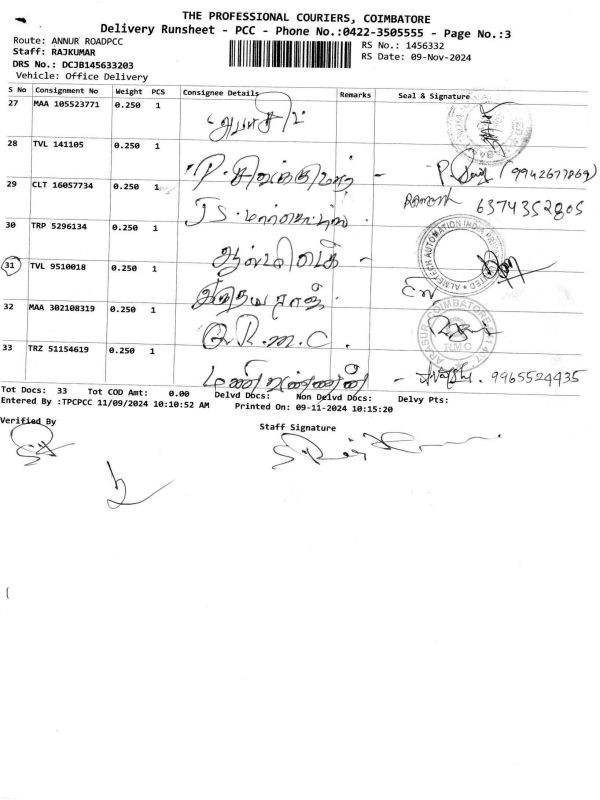 THE PROFESSIONAL COURIERS, COIMBATORE
Delivery Runsheet - PCC - Phone No.:0422-3505555 - Page No.:3
Route: ANNUR ROADPCC
RS No.: 1456332
Staff: RAJKUMAR
RS Date: 09-Nov-2024
DRS No.: DCJB145633203
Vehicle: Office Delivery
S No Consignment No Weight PCS Consignee Details Remarks Seal & Signature
27 MAA 105523771 0.250 1
28 TVL 141105 0.250 1 P. சிவக்குமார் - (9942677869)
29 CLT 16057734 0.250 1 JS. Ramesh 6374352805
30 TRP 5296134 0.250 1
ALMETECH AUTOMATION INDIA
31 TVL 9510018 0.250 1 இதயராஜ்.
32 MAA 302108319 0.250 1 R.M.C.
COIMBATORE
RMC
33 TRZ 51154619 0.250 1 மணிவண்ணன் - 9965524435
Tot Docs: 33 Tot COD Amt: 0.00 Delvd Docs: Non Delvd Docs: Delvy Pts:
Entered By :TPCPCC 11/09/2024 10:10:52 AM Printed On: 09-11-2024 10:15:20
Verified By
Staff Signature